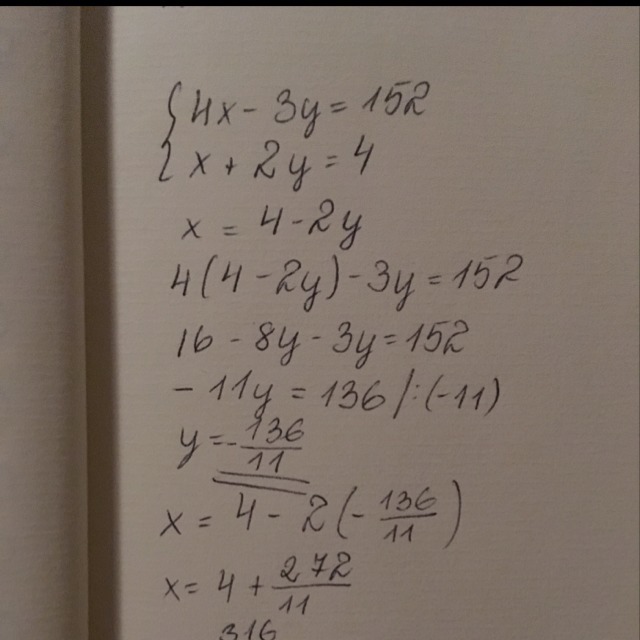 4x - 3y = 152
x + 2y = 4
x = 4 - 2y
4(4 - 2y) - 3y = 152
16 - 8y - 3y = 152
-11y = 136 /:(-11)
y = -136/11
x = 4 - 2(-136/11)
x = 4 + 272/11
316